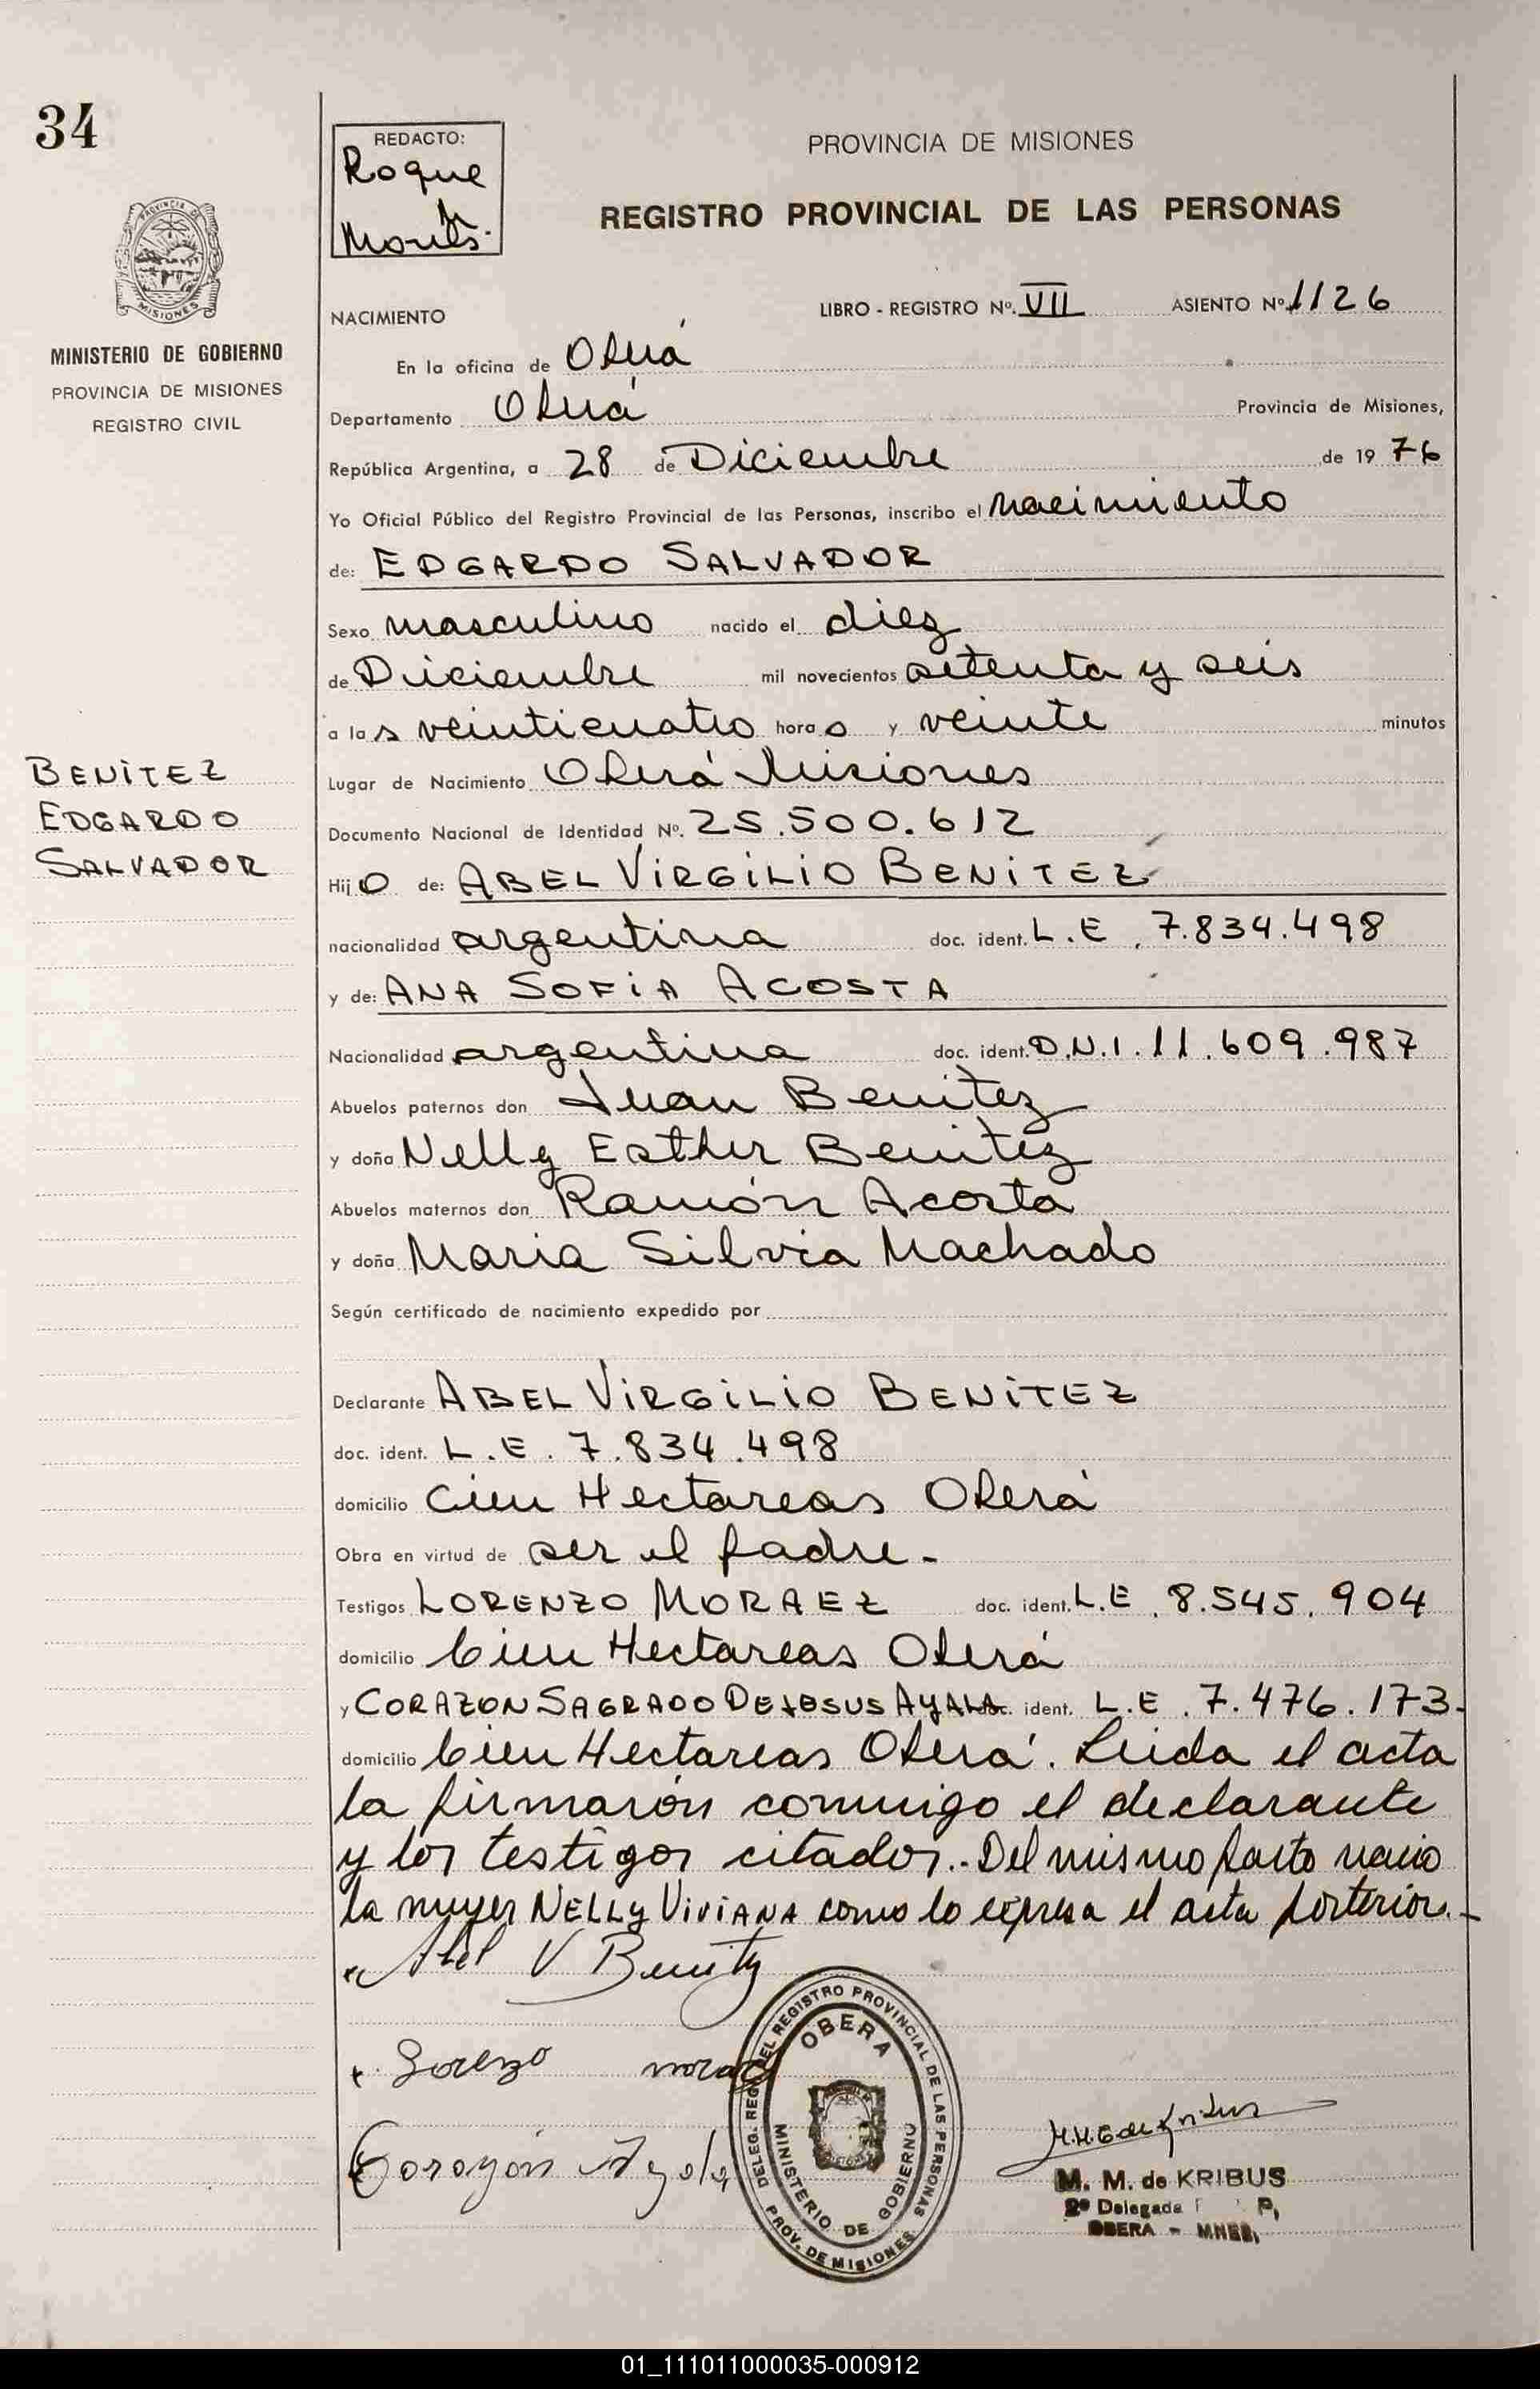 34
REDACTO:
Roque
PROVINCIA DE MISIONES
REGISTRO PROVINCIAL DE LAS PERSONAS
PROVINCIA DE
MISIONES
MINISTERIO DE GOBIERNO
PROVINCIA DE MISIONES
REGISTRO CIVIL
NACIMIENTO LIBRO - REGISTRO Nº. VII ASIENTO Nº 1126
En la oficina de Oberá
Departamento Oberá Provincia de Misiones,
República Argentina, a 28 de Diciembre de 1976
Yo Oficial Público del Registro Provincial de las Personas, inscribo el nacimiento
de: EDGARDO SALVADOR
Sexo masculino nacido el diez
de Diciembre mil novecientos setenta y seis
a las veinticuatro horas y veinte minutos
BENÍTEZ
EDGARDO
SALVADOR
Lugar de Nacimiento Oberá Misiones
Documento Nacional de Identidad Nº. 25.500.612
Hijo de: ABEL VIRGILIO BENITEZ
nacionalidad argentina doc. ident. L.E. 7.834.498
y de: ANA SOFIA ACOSTA
Nacionalidad argentina doc. ident. D.N.I. 11.609.987
Abuelos paternos don Juan Benitez
y doña Nelly Esther Benitez
Abuelos maternos don Ramón Acosta
y doña Maria Silvia Machado
Según certificado de nacimiento expedido por
Declarante ABEL VIRGILIO BENITEZ
doc. ident. L.E. 7.834.498
domicilio Cien Hectareas Oberá
Obra en virtud de ser el padre.-
Testigos LORENZO MORAEZ doc. ident. L.E. 8.545.904
domicilio Cien Hectareas Oberá
y CORAZON SAGRADO DE JESUS AYALA doc. ident. L.E. 7.476.173-
domicilio Cien Hectareas Oberá. Leida el acta
la firmarón conmigo el declarante
y los testigos citados.- Del mismo parto nacio
la mujer NELLY VIVIANA como lo expresa el acta posterior.-
Abel V Benitez
Lorenzo moraez
Corazón Ayala
DELEG. REG. DEL REGISTRO PROVINCIAL DE LAS PERSONAS
OBERA
MINISTERIO DE GOBIERNO
PROV. DE MISIONES
M. M. de KRIBUS
2º Delegada
OBERA - MNES.
01_111011000035-000912